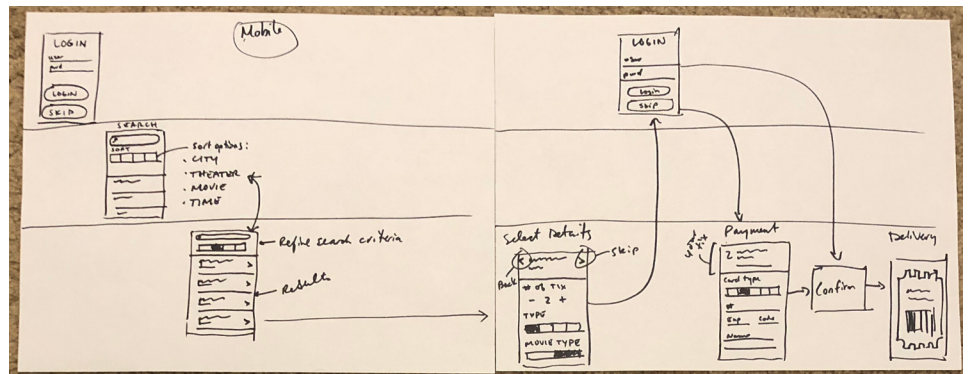 Mobile
LOGIN
user
pwd
LOGIN
SKIP
SEARCH
SORT
Sort options:
• CITY
• THEATER
• MOVIE
• TIME
Refine search criteria
Results
LOGIN
user
pwd
Login
Skip
Select Details
Back
<
>
Skip
# OF TIX
- 2 +
TYPE
MOVIE TYPE
Payment
2
Card type
#
Exp Code
Name
Confirm
Delivery